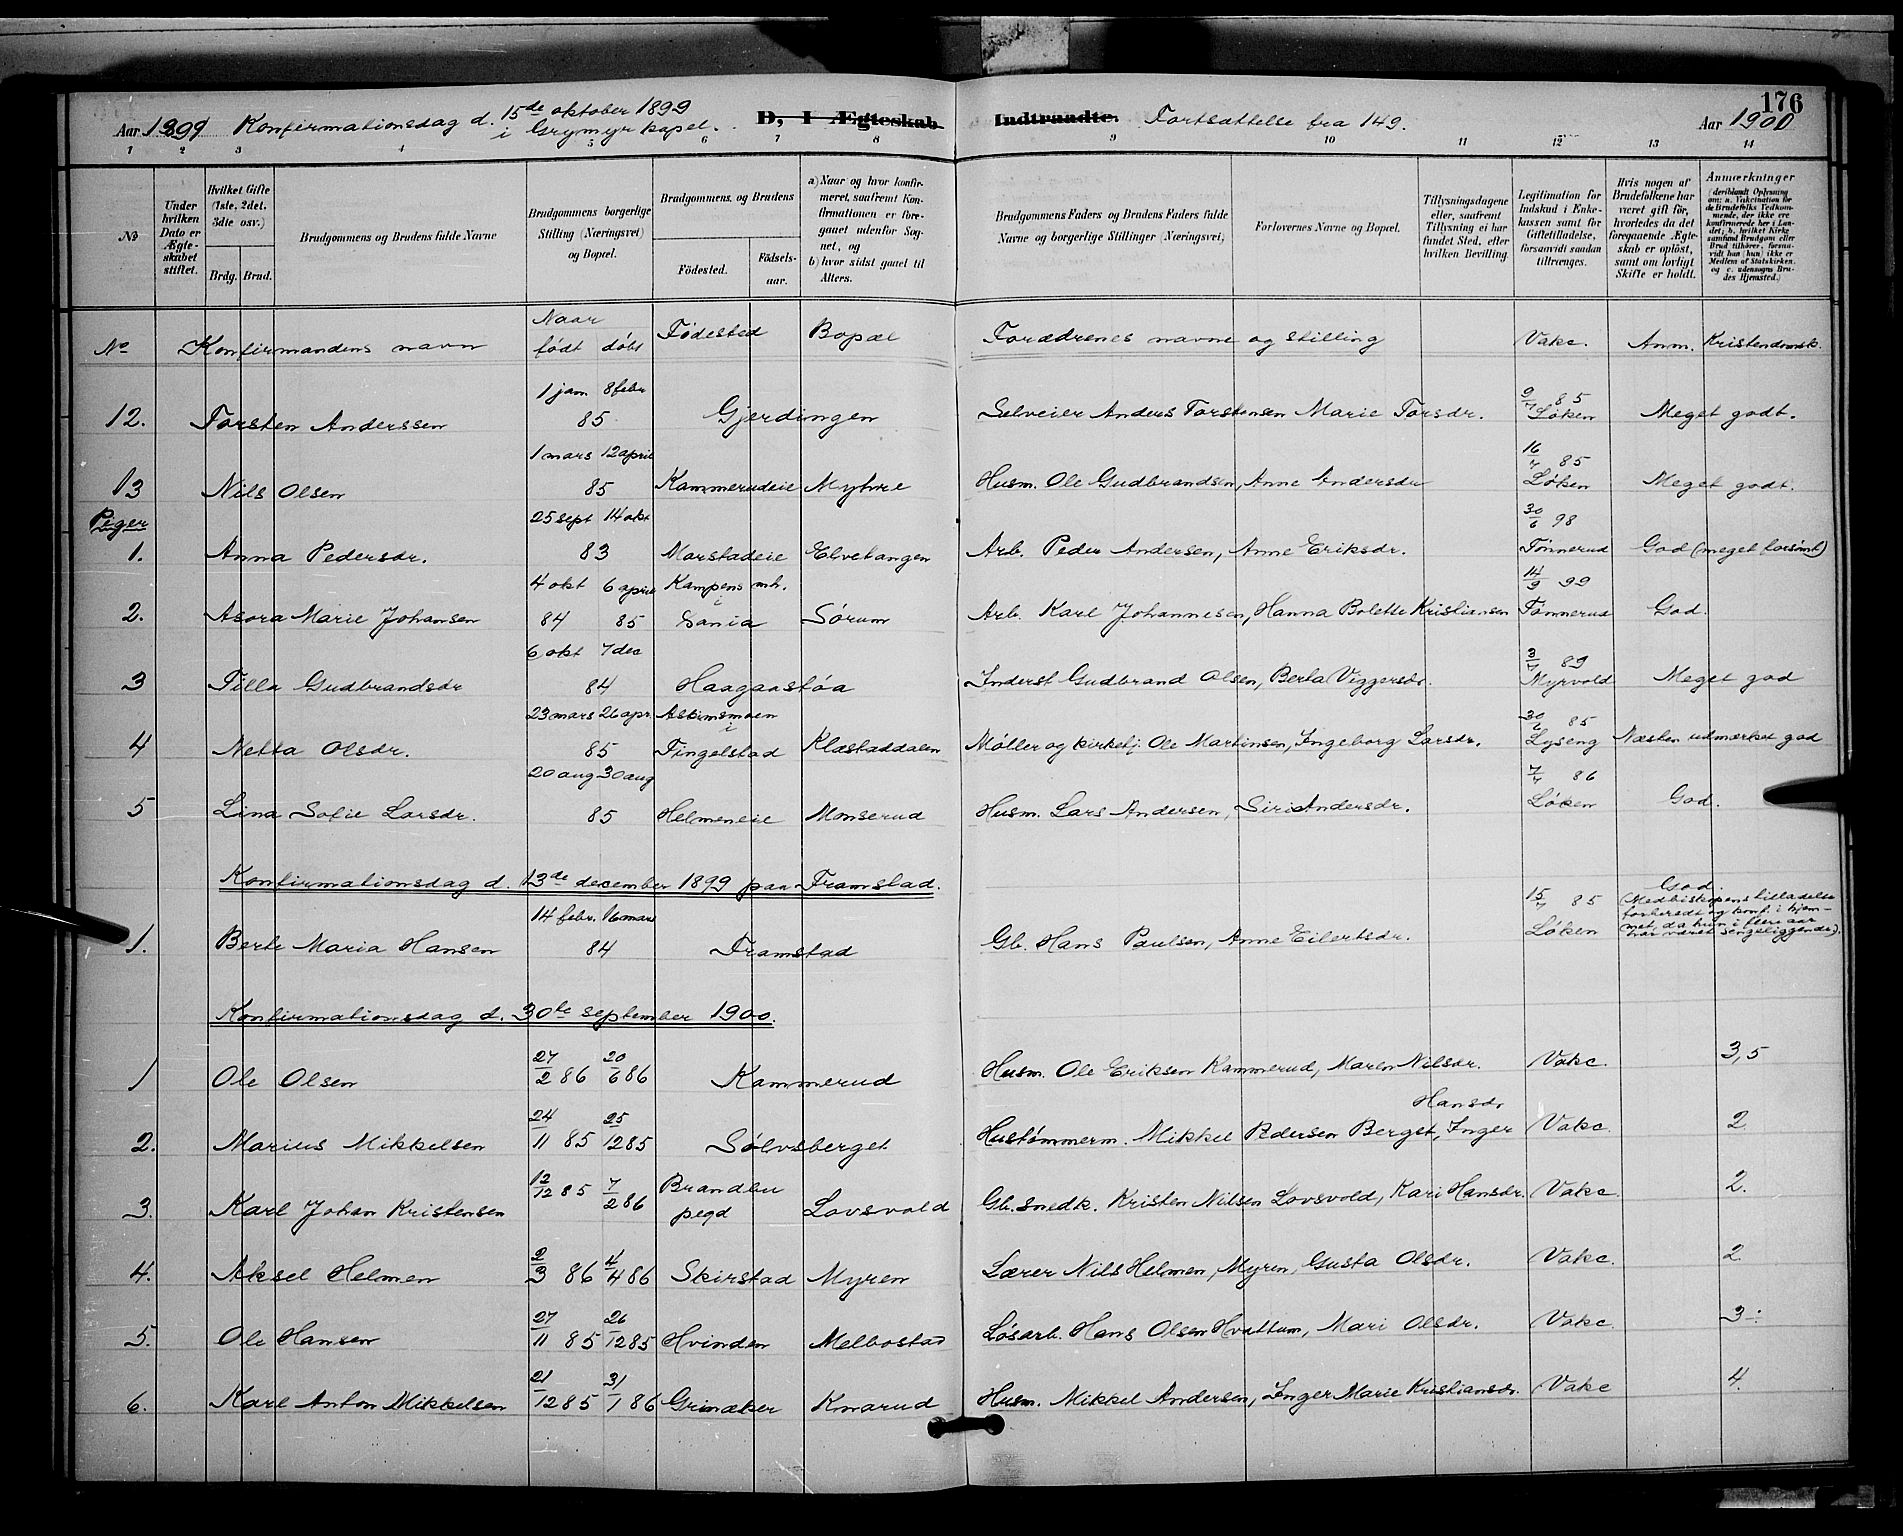 176
Aar 1899 Konfirmationsdag d. 15de oktober 1899 i Grymyr kapel. D, I Ægteskab Indtraadte. Fortsættelse fra 149. Aar 1900
1 2 3 4 5 6 7 8 9 10 11 12 13 14
No
Under hvilken Dato er Ægteskabet stiftet.
Hvilket Gifte (1ste, 2det, 3die osv.)
Brdg. Brud.
Brudgommens og Brudens fulde Navne
Brudgommens borgerlige Stilling (Næringsvei) og Bopæl.
Brudgommens, og Brudens
Födested. Födselsaar.
a) Naar og hvor konfirmeret, saafremt Konfirmationen er foregaaet udenfor Sognet, og
b) hvor sidst gaaet til Alters.
Brudgommens Faders og Brudens Faders fulde Navne og borgerlige Stillinger (Næringsvei)
Forlovernes Navne og Bopæl.
Tillysningsdagene eller, saafremt Tillysning ei har fundet Sted, efter hvilken Bevilling.
Legitimation for Indskud i Enkekassen samt for Giftetilladelse, forsaavidt saadan tiltrænges.
Hvis nogen af Brudefolkene har været gift før, hvorledes da det foregaaende Ægteskab er oplöst, samt om lovligt Skifte er holdt.
Anmærkninger
(deriblandt Oplysning om: a. Vakcination for de Brudefolks Vedkommende, der ikke ere konfirmerede her i Landet; b. hvilket Kirkesamfund Brudgom eller Brud tilhører, forsaavidt han (hun) ikke er Medlem af Statskirken, og c. udensogns Brudes Hjemsted.)
No Konfirmandens navn Naar født døbt Fødested Bopæl Forædrenes navne og stilling Vakc. Anm. Kristendomsk.
12. Torsten Anderssen 1 jan 8 febr 85 Gjerdingen Selveier Anders Torstensen Marie Torsdr. 9/7 85 Løken Meget godt.
13 Nils Olsen 1 mars 12 april 85 Kammerudeie Myhre Husm. Ole Gudbrandsen, Anne Andersdr 16/7 85 Løken Meget godt.
Piger
1. Anna Pedersdr. 25 sept 14 okt 83 Morstadeie Elvetangen Arb. Peder Andersen, Anne Eriksdr. 30/6 98 Tønnerud God (meget forsømt)
2. Asora Marie Johansen 4 okt 84 6 april 85 Kampens mh. i Sørum Arb. Karl Johannesen, Hanna Bolette Kristiansen 14/9 99 Tønnerud God.
3 Tilla Gudbrandsdr 6 okt 7 dec 84 Haagaastøa Inderst Gudbrand Olsen, Berta Viggersdr. 3/7 89 Myrvold Meget god
4 Netta Olsdr. 23 mars 26 apr. 85 Askimsmoen i Tingelstad Klæstaddalen Møller og kirketj. Ole Martinsen, Ingeborg Larsdr. 30/6 85 Lyseng Næsten udmærket god
5 Lina Sofie Larsdr. 20 aug 30 aug 85 Helmeneie Monserud Husm. Lars Andersen, Siri Andersdr. 7/7 86 Løken God.
Konfirmationsdag d. 13de december 1899 paa Framstad.
1. Berte Maria Hansen 14 febr. 16 mars 84 Framstad Gb. Hans Paulsen, Anne Eilertsdr. 15/7 85 Løken God. (Med biskopens tilladelse forberedt og konf. i hjemmet, da hun i flere aar har været sengeliggende).
Konfirmationsdag d. 30te september 1900.
1 Ole Olsen 27/2 86 20/6 86 Kammerud Husm. Ole Eriksen Kammerud, Maren Nilsdr. Vakc. 3,5
2. Marius Mikkelsen 24/11 85 25/12 85 Sølvsberget Hustømmerm. Mikkel Pedersen Berget, Inger Hansdr Vakc. 2
3. Karl Johan Kristensen 12/12 85 7/2 86 Brandbu pegd Lovsvold Gb. snedk. Kristen Nilsen Lovsvold, Kari Hansdr. Vakc. 2.
4. Aksel Helmen 2/3 86 4/4 86 Skirstad Myren Lærer Nils Helmen, Myren, Gusta Olsdr. Vakc. 2
5. Ole Hansen 27/11 85 26/12 85 Hvinden Melbostad Løsarb. Hans Olsen Hvattum, Mari Olsdr. Vakc. 3÷
6. Karl Anton Mikkelsen 21/12 85 31/1 86 Grinaker Knarud Husm. Mikkel Andersen, Inger Marie Kristiansdr. Vakc 4.